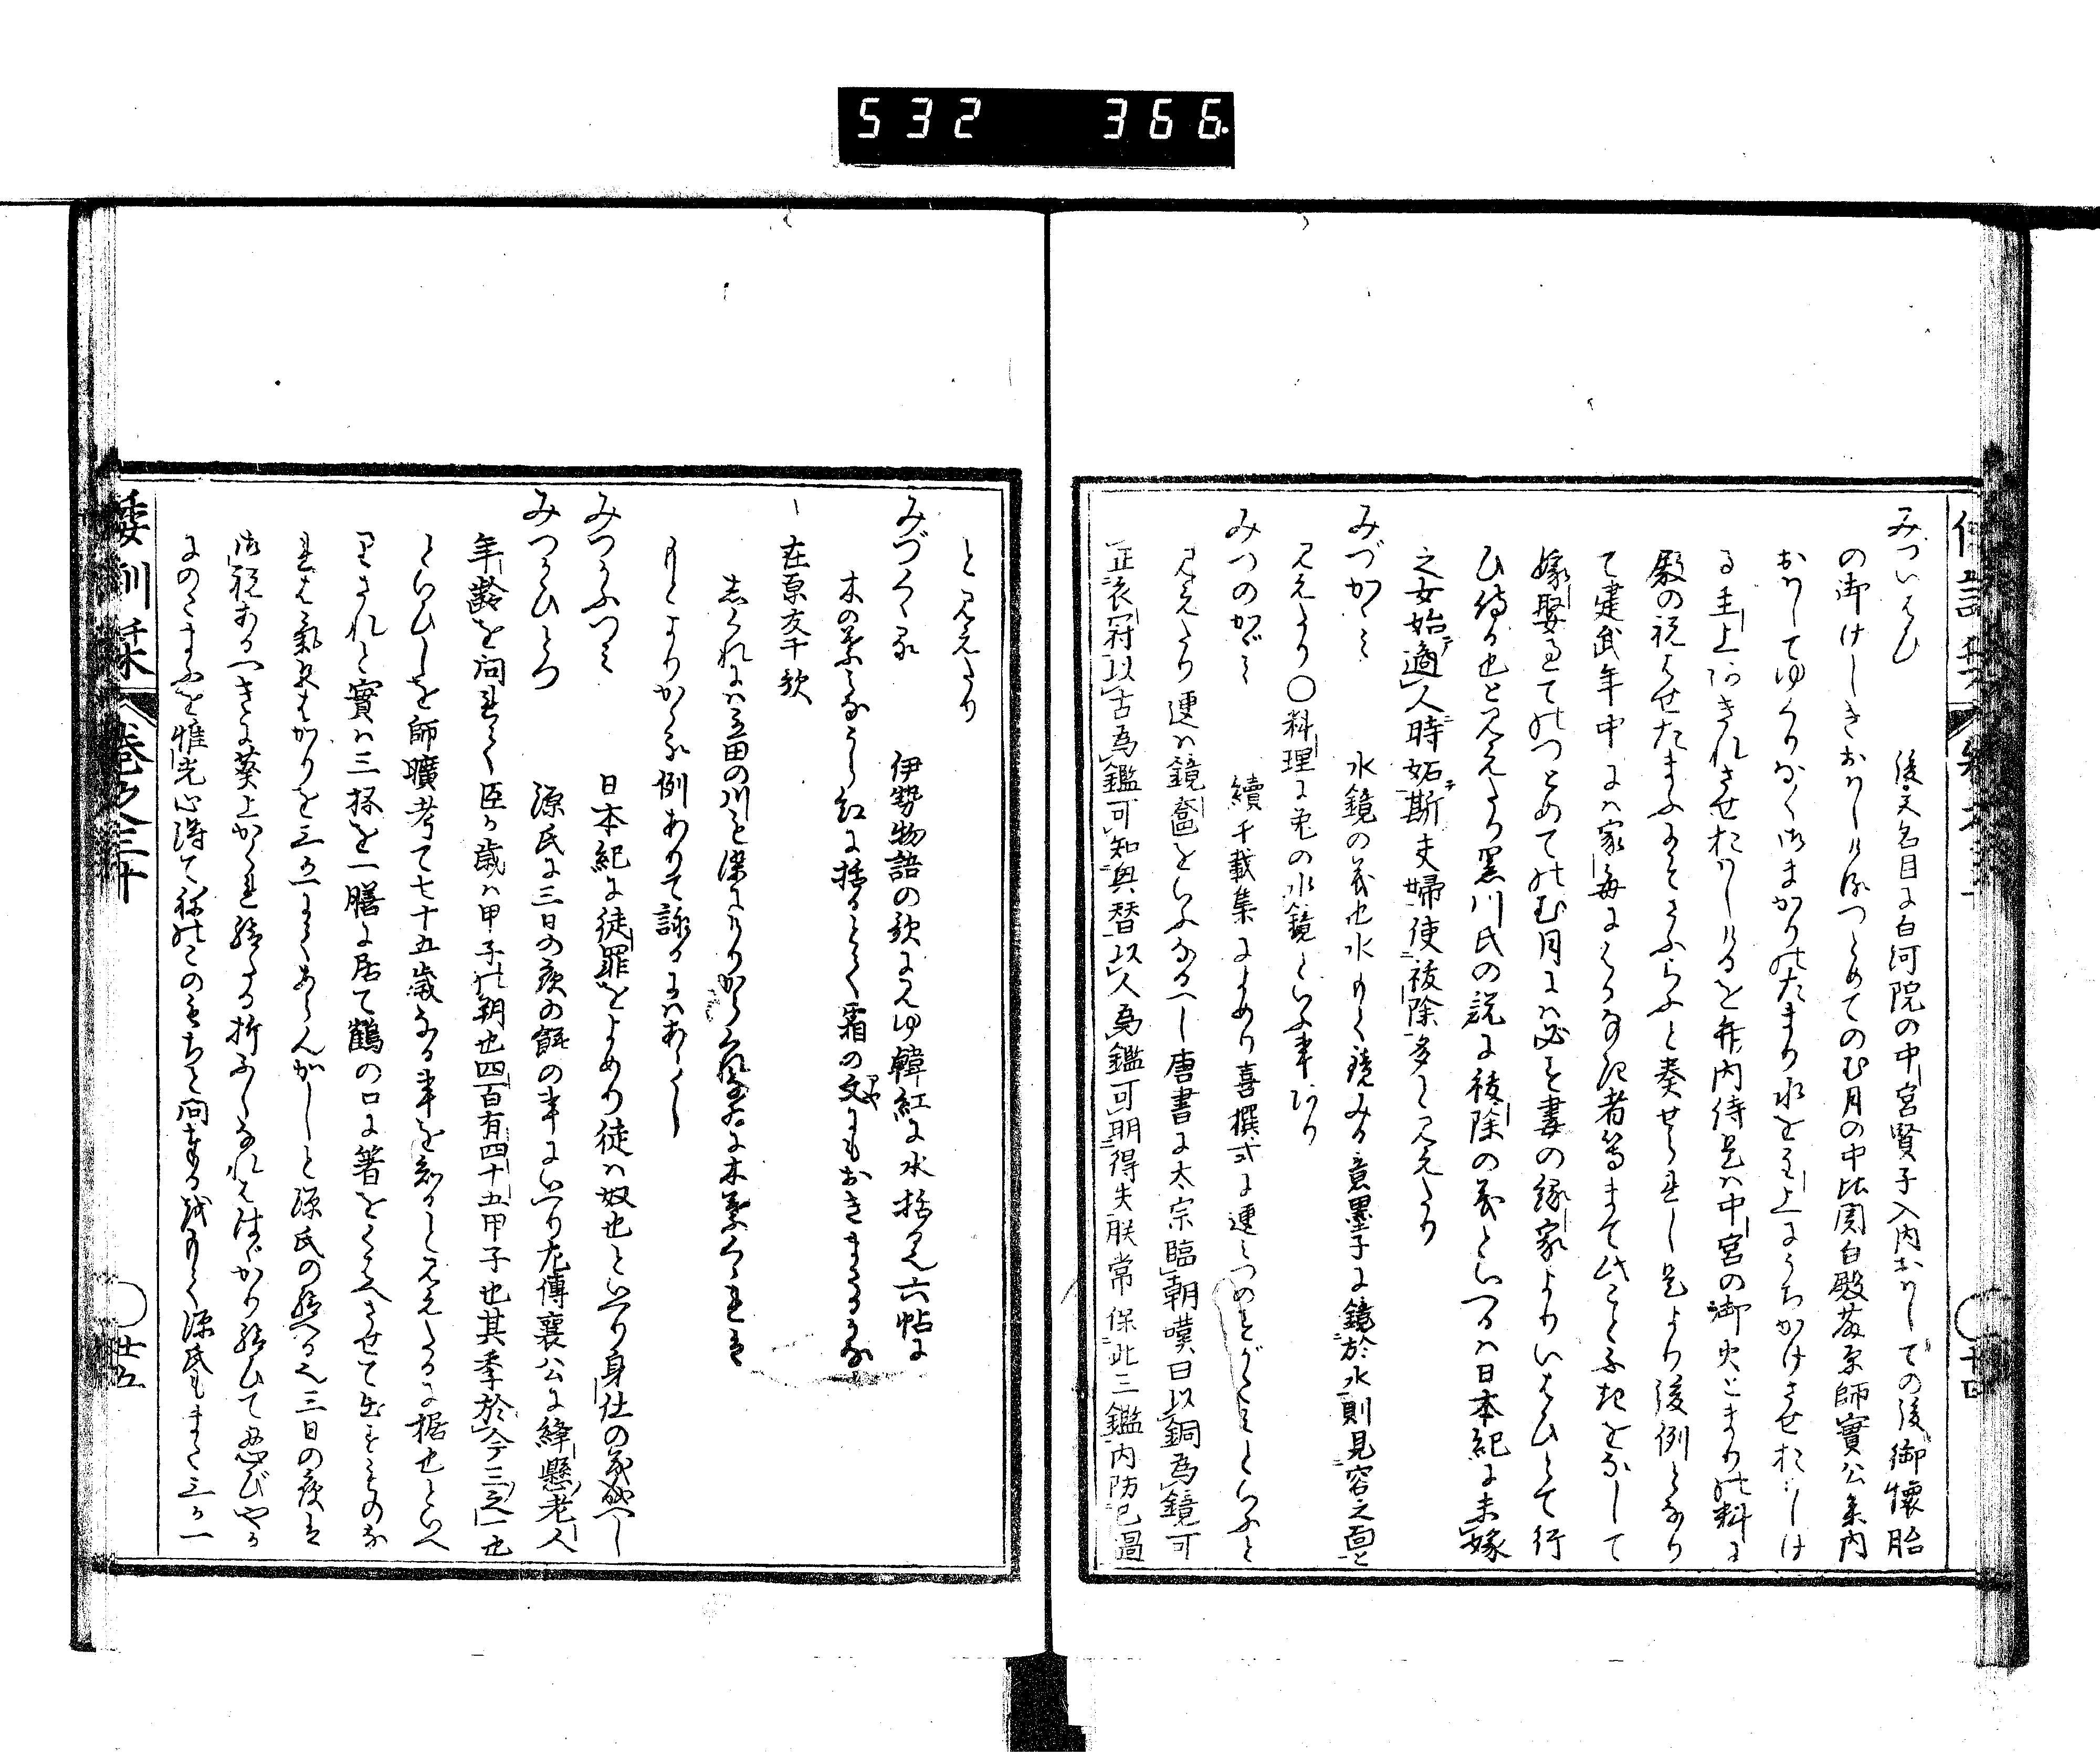 532 366
みづいはひ 後天名目に白河院の中宮賢子入内おはしての後御懐胎
の御けしきおはしけるつとめてのむ月の中比関白殿藤原師實公参内
おはしてゆくりなく御まかりのたまり水を主上にうちかけさせおはしけ
る主上あきれさせおはしけるを弁内侍是は中宮の御火とまりの料に
殿の祝はせたまふにこそさふらふと奏せられし是より後例となり
て建武年中には家毎にはるなれ者等まてもことふきをなして
嫁娶してのつとめてのむ月には必す妻の縁家よりいはひとて行
ひ侍る也と見えたり黒川氏の説に祓除の義といへるは日本紀に未嫁
之女始適人時妬斯夫婦使祓除多と見えたり
みづかゞミ 水鏡の義也水もて鏡みる意墨子に鏡於水則見容之面と
見えたり〇料理に菟の水鏡といふ事あり
みつのかゞミ 續千載集によめり喜撰式に連をみつのますがゞミといふと
見えたり連は鏡奩をいふなるへし唐書に太宗臨朝嘆曰以銅為鏡可
正衣冠以古為鑑可知興替以人為鑑可明得失朕常保此三鑑内防己過
と見えたり
みづくゝる 伊勢物語の歌に見ゆ韓紅に水括る也六帖に
木の葉みなから紅に括るとて霜の文にもおきまさるかな
在原友于歌
しくれには立田の川も染にけりから紅に木葉くゝれは
もとよりかゝる例ありて詠るにはあらし
みつかふつミ 日本紀に徒罪をよめり徒は奴也といへり身仕の義成へし
みつかひとつ 源氏に三日の夜の餅の事にいへり左傳襄公に絳縣老人
年齢を問れて臣か歳は甲子の朔也四百有四十五甲子也其季於今三之一也
といひしを師曠考て七十五歳なる事を知ると見えたるに据也といへ
りされと實は三杯を一膳に居て鶴の口に箸をくはへさせて出すものな
れは氣色はかりを三か一にてあらんかしと源氏の給へる也三日の夜は
御祝あるへきに葵上かくれ給へる折ふしなれははゞかり給ひて忍びやか
にのたまふを惟光心得てねのこのもちと問奉る故もて源氏もまた三か一
倭訓栞 巻之三十 廿五